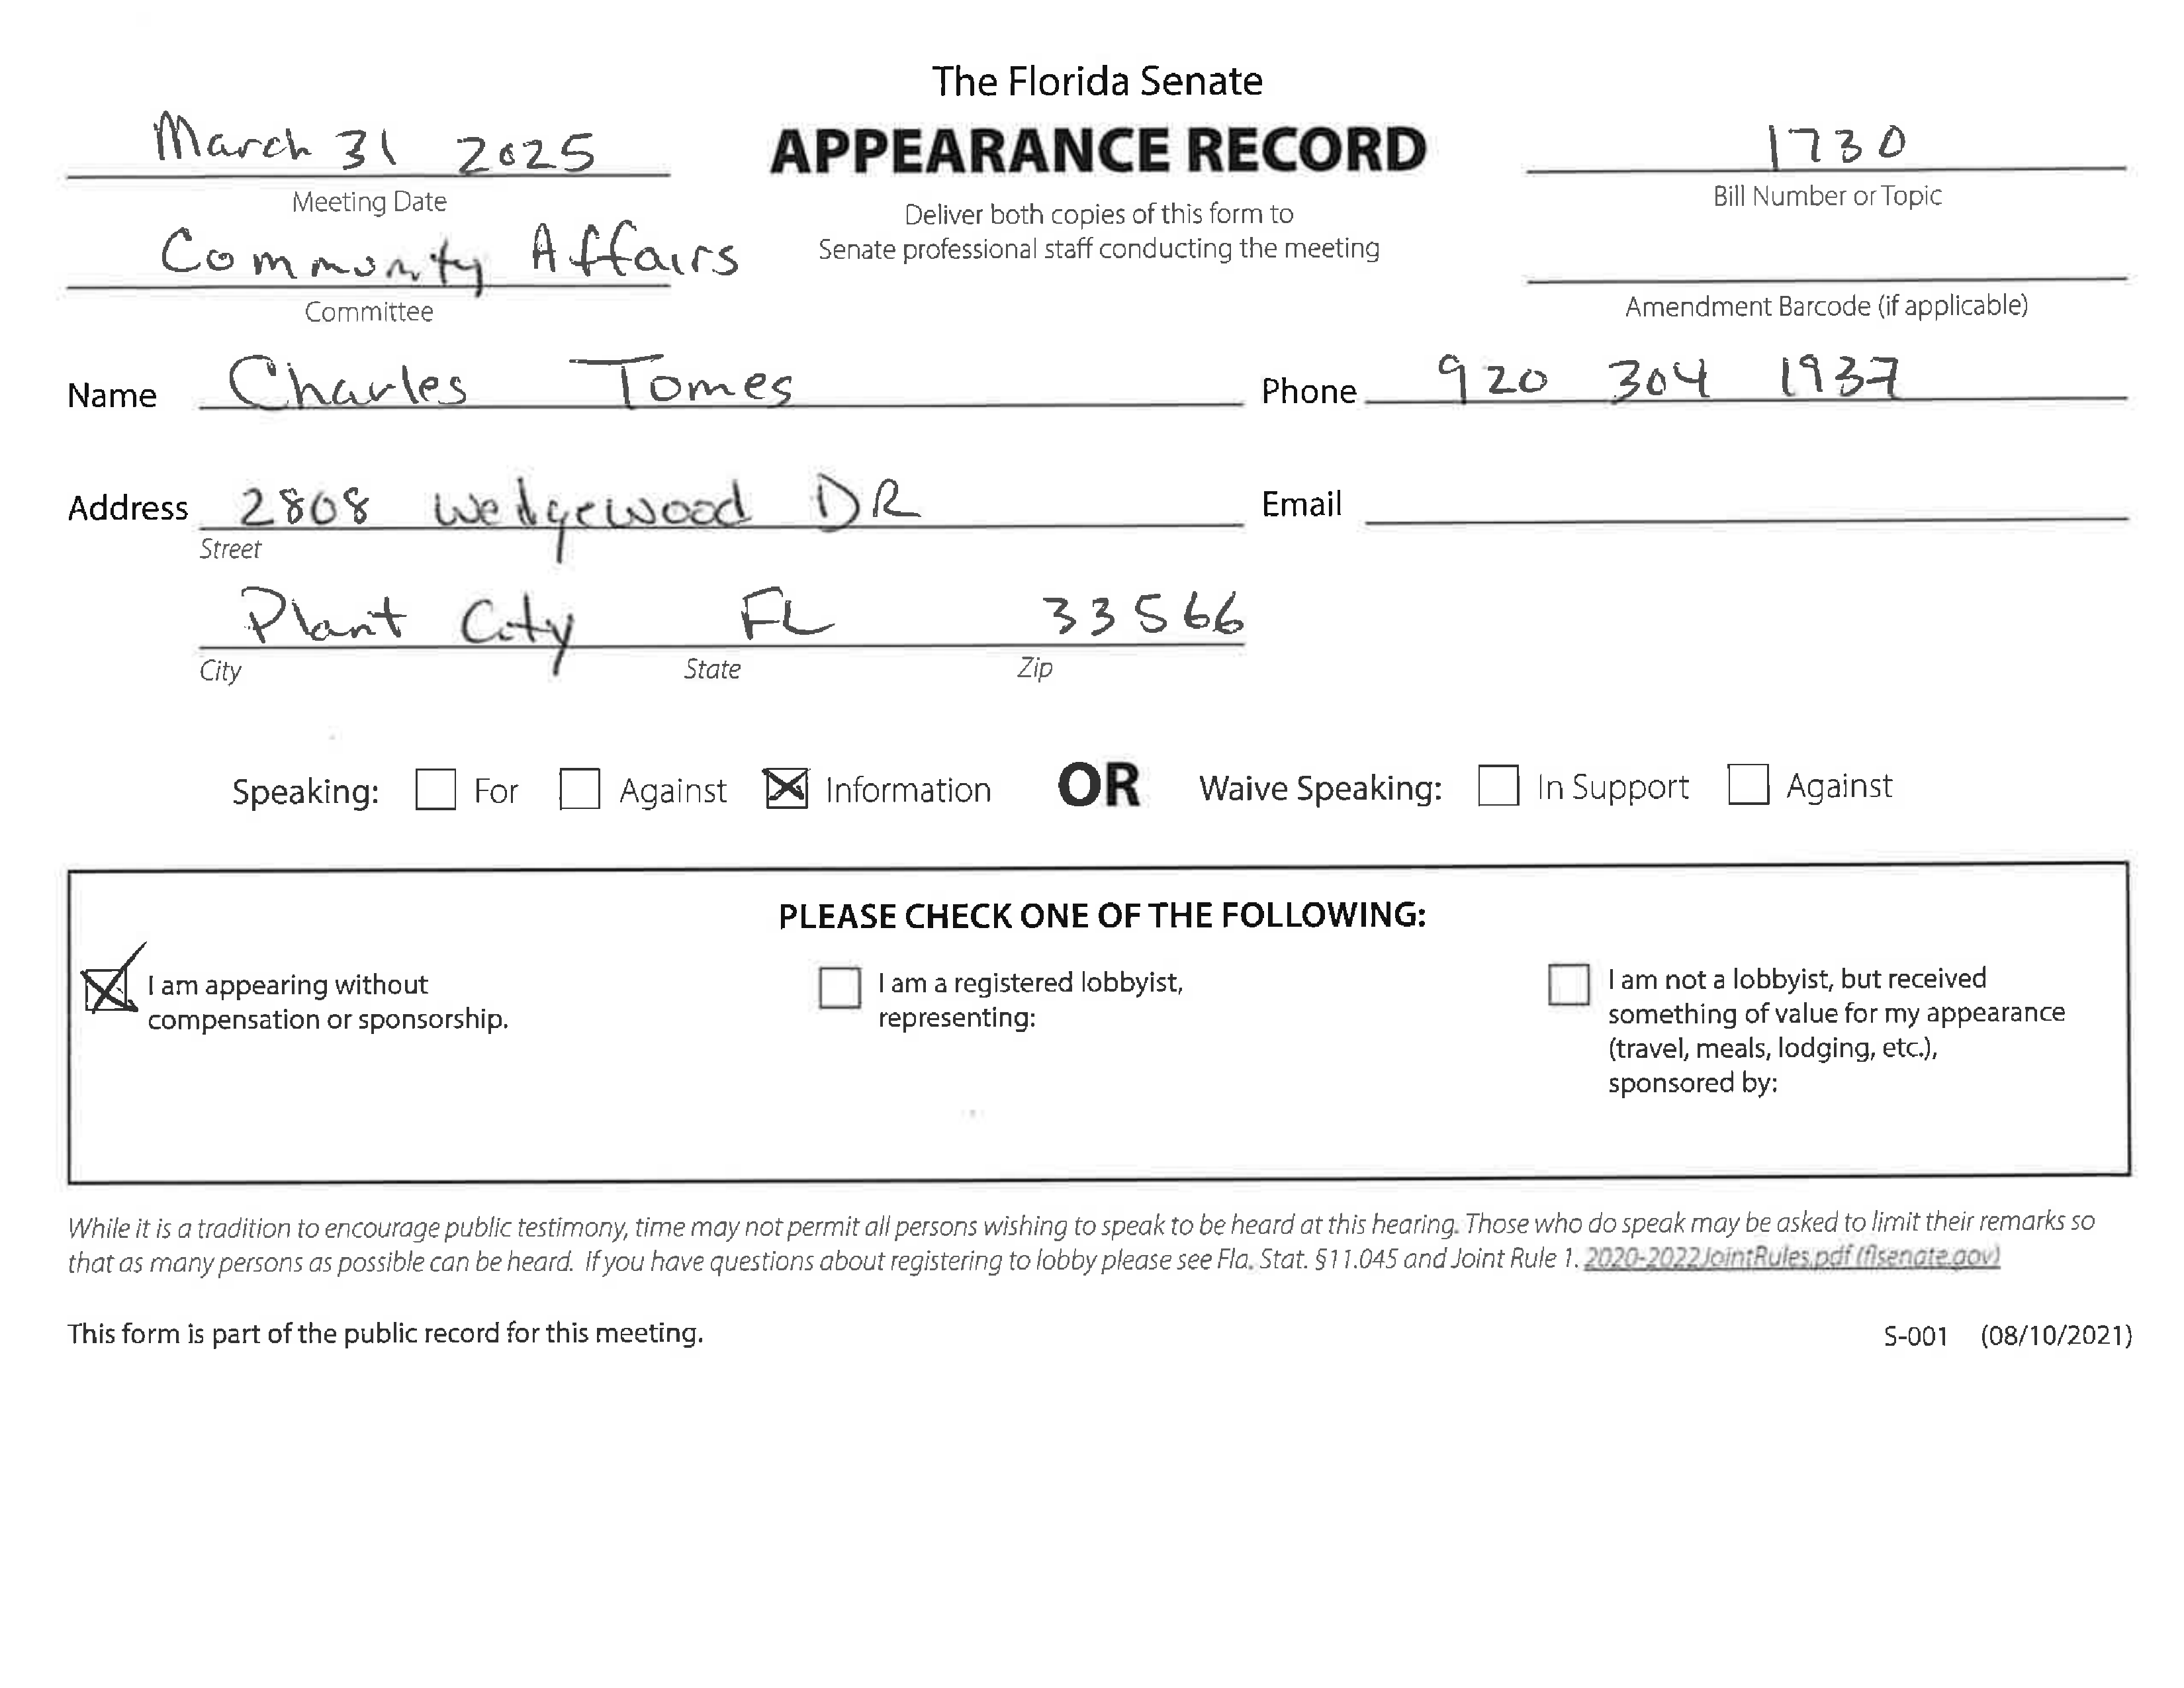 The Florida Senate
March 31 2025
APPEARANCE RECORD
1730
Meeting Date
Bill Number or Topic
Deliver both copies of this form to
Senate professional staff conducting the meeting
Community Affairs
Committee
Amendment Barcode (if applicable)
Name Charles Tomes Phone 920 304 1937
Address 2808 Wedgewood DR Email
Street
Plant City FL 33566
City State Zip
Speaking: For Against Information OR Waive Speaking: In Support Against
PLEASE CHECK ONE OF THE FOLLOWING:
I am appearing without
compensation or sponsorship.
I am a registered lobbyist,
representing:
I am not a lobbyist, but received
something of value for my appearance
(travel, meals, lodging, etc.),
sponsored by:
While it is a tradition to encourage public testimony, time may not permit all persons wishing to speak to be heard at this hearing. Those who do speak may be asked to limit their remarks so
that as many persons as possible can be heard. If you have questions about registering to lobby please see Fla. Stat. §11.045 and Joint Rule 1. 2020-2022JointRules.pdf (flsenate.gov)
This form is part of the public record for this meeting.
S-001 (08/10/2021)